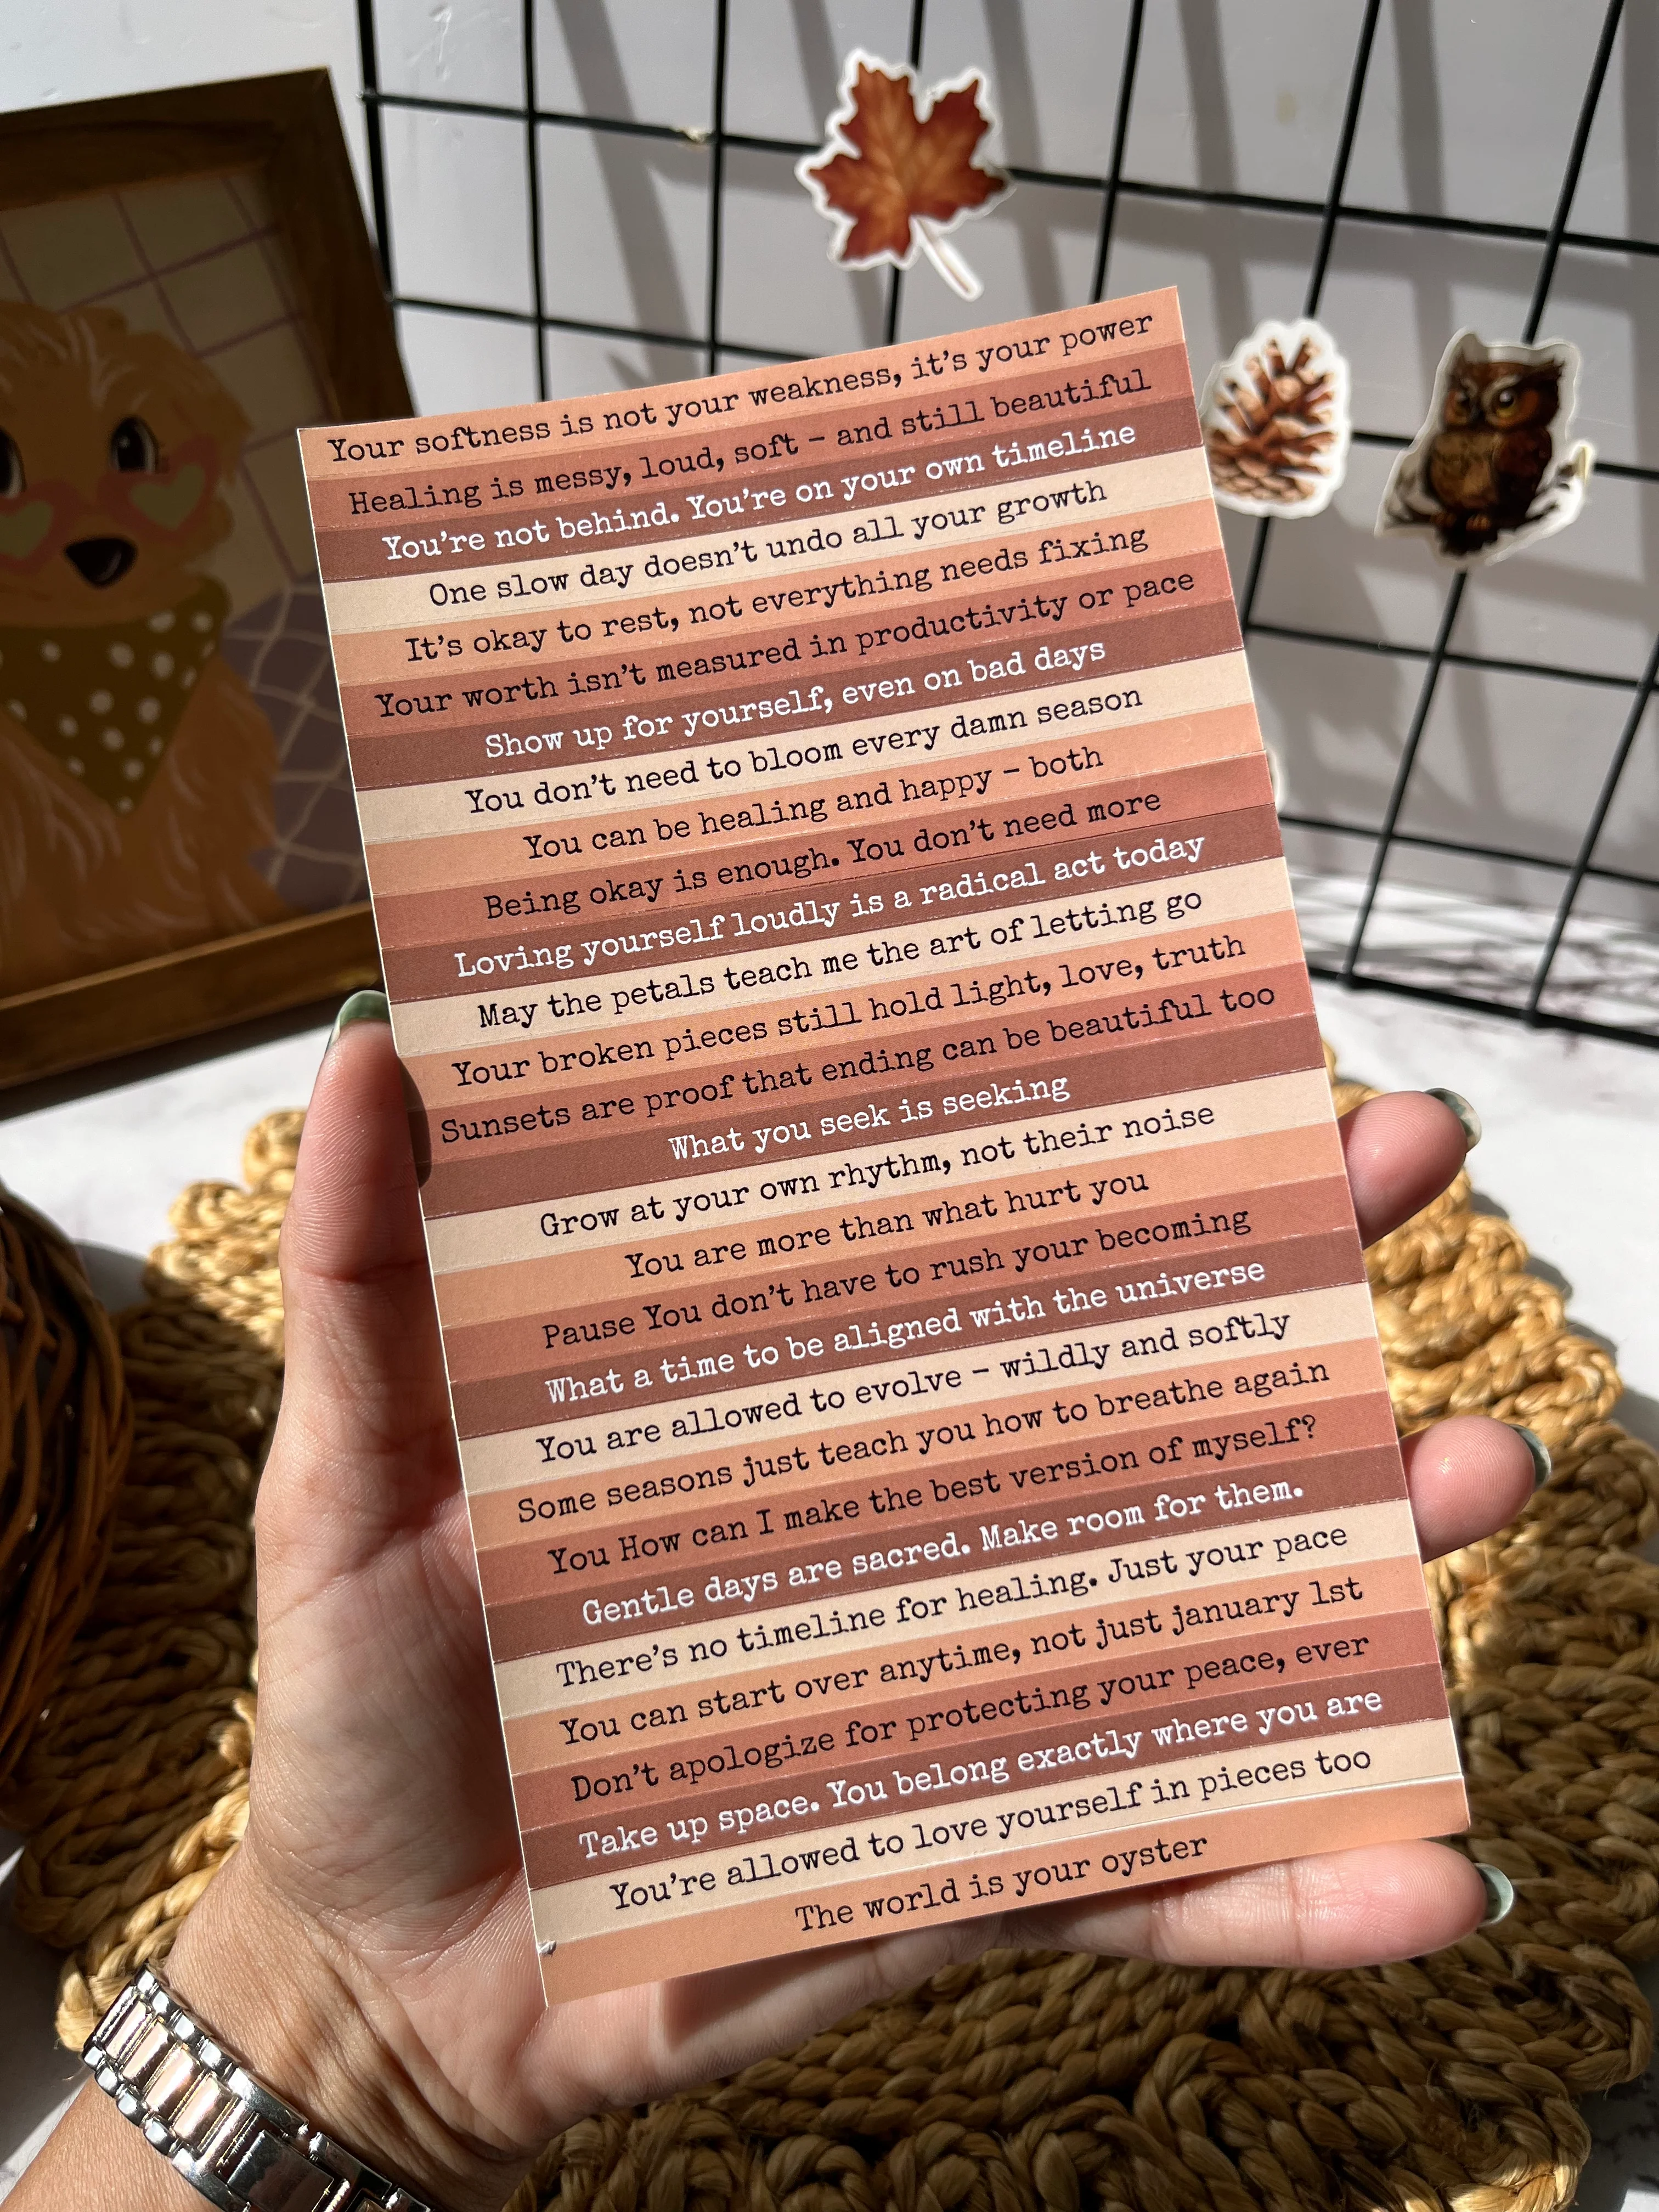 Your softness is not your weakness, it's your power
Healing is messy, loud, soft – and still beautiful
You're not behind. You're on your own timeline
One slow day doesn't undo all your growth
It's okay to rest, not everything needs fixing
Your worth isn't measured in productivity or pace
Show up for yourself, even on bad days
You don't need to bloom every damn season
You can be healing and happy – both
Being okay is enough. You don't need more
Loving yourself loudly is a radical act today
May the petals teach me the art of letting go
Your broken pieces still hold light, love, truth
Sunsets are proof that ending can be beautiful too
What you seek is seeking
Grow at your own rhythm, not their noise
You are more than what hurt you
Pause You don't have to rush your becoming
What a time to be aligned with the universe
You are allowed to evolve – wildly and softly
Some seasons just teach you how to breathe again
You How can I make the best version of myself?
Gentle days are sacred. Make room for them.
There's no timeline for healing. Just your pace
You can start over anytime, not just january 1st
Don't apologize for protecting your peace, ever
Take up space. You belong exactly where you are
You're allowed to love yourself in pieces too
The world is your oyster